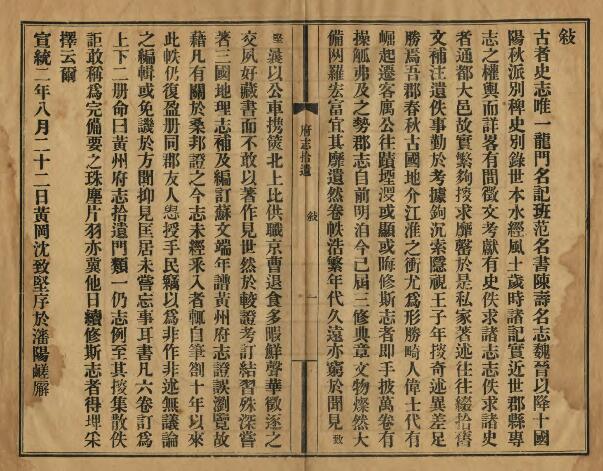 敍
古者史志唯一龍門名記班范名書陳壽名志魏晉以降十國
陽秋派別稗史別錄世本水經風土歲時諸記實近世郡縣專
志之權輿而詳畧有間徵文考獻有史佚求諸志志佚求諸史
者通都大邑故實繁夥挍求靡罄於是私家著述往往綴拾舊
文補注遺佚事勤於考據鉤沉索隱視王子年挍奇述異差足
勝焉吾郡春秋古國地介江淮之衝尤爲形勝畸人偉士代有
崛起遷客寓公往蹟堙溲或顯或晦修斯志者即手披萬卷有
操觚弗及之勢郡志自前明洎今已屆三修典章文物燦然大
備网羅宏富宜其靡遺然卷帙浩繁年代久遠亦窮於聞見致
府志拾遺
敍
一
堅曩以公車携篋北上比供職京曹退食多暇鮮聲華徵逐之
交夙好藏書而不敢以著作見世然於較證考訂結習殊深嘗
著三國地理志補及編訂蘇文端年譜黃州府志證誤瀏覽故
藉凡有關於桑邦證之今志未經采入者輒自筆劄十年以來
此帙仍復盈册同郡友人恖授手民竊以爲非作非述無議論
之編輯或免譏於方聞抑見匡居未嘗忘事耳書凡六卷訂爲
上下二册命曰黃州府志拾遺門類一仍志例至其挍集散佚
詎敢稱爲完備要之珠塵片羽亦冀他日續修斯志者得埋采
擇云爾
宣統二年八月二十二日黃岡沈致堅序於瀋陽嵯廨